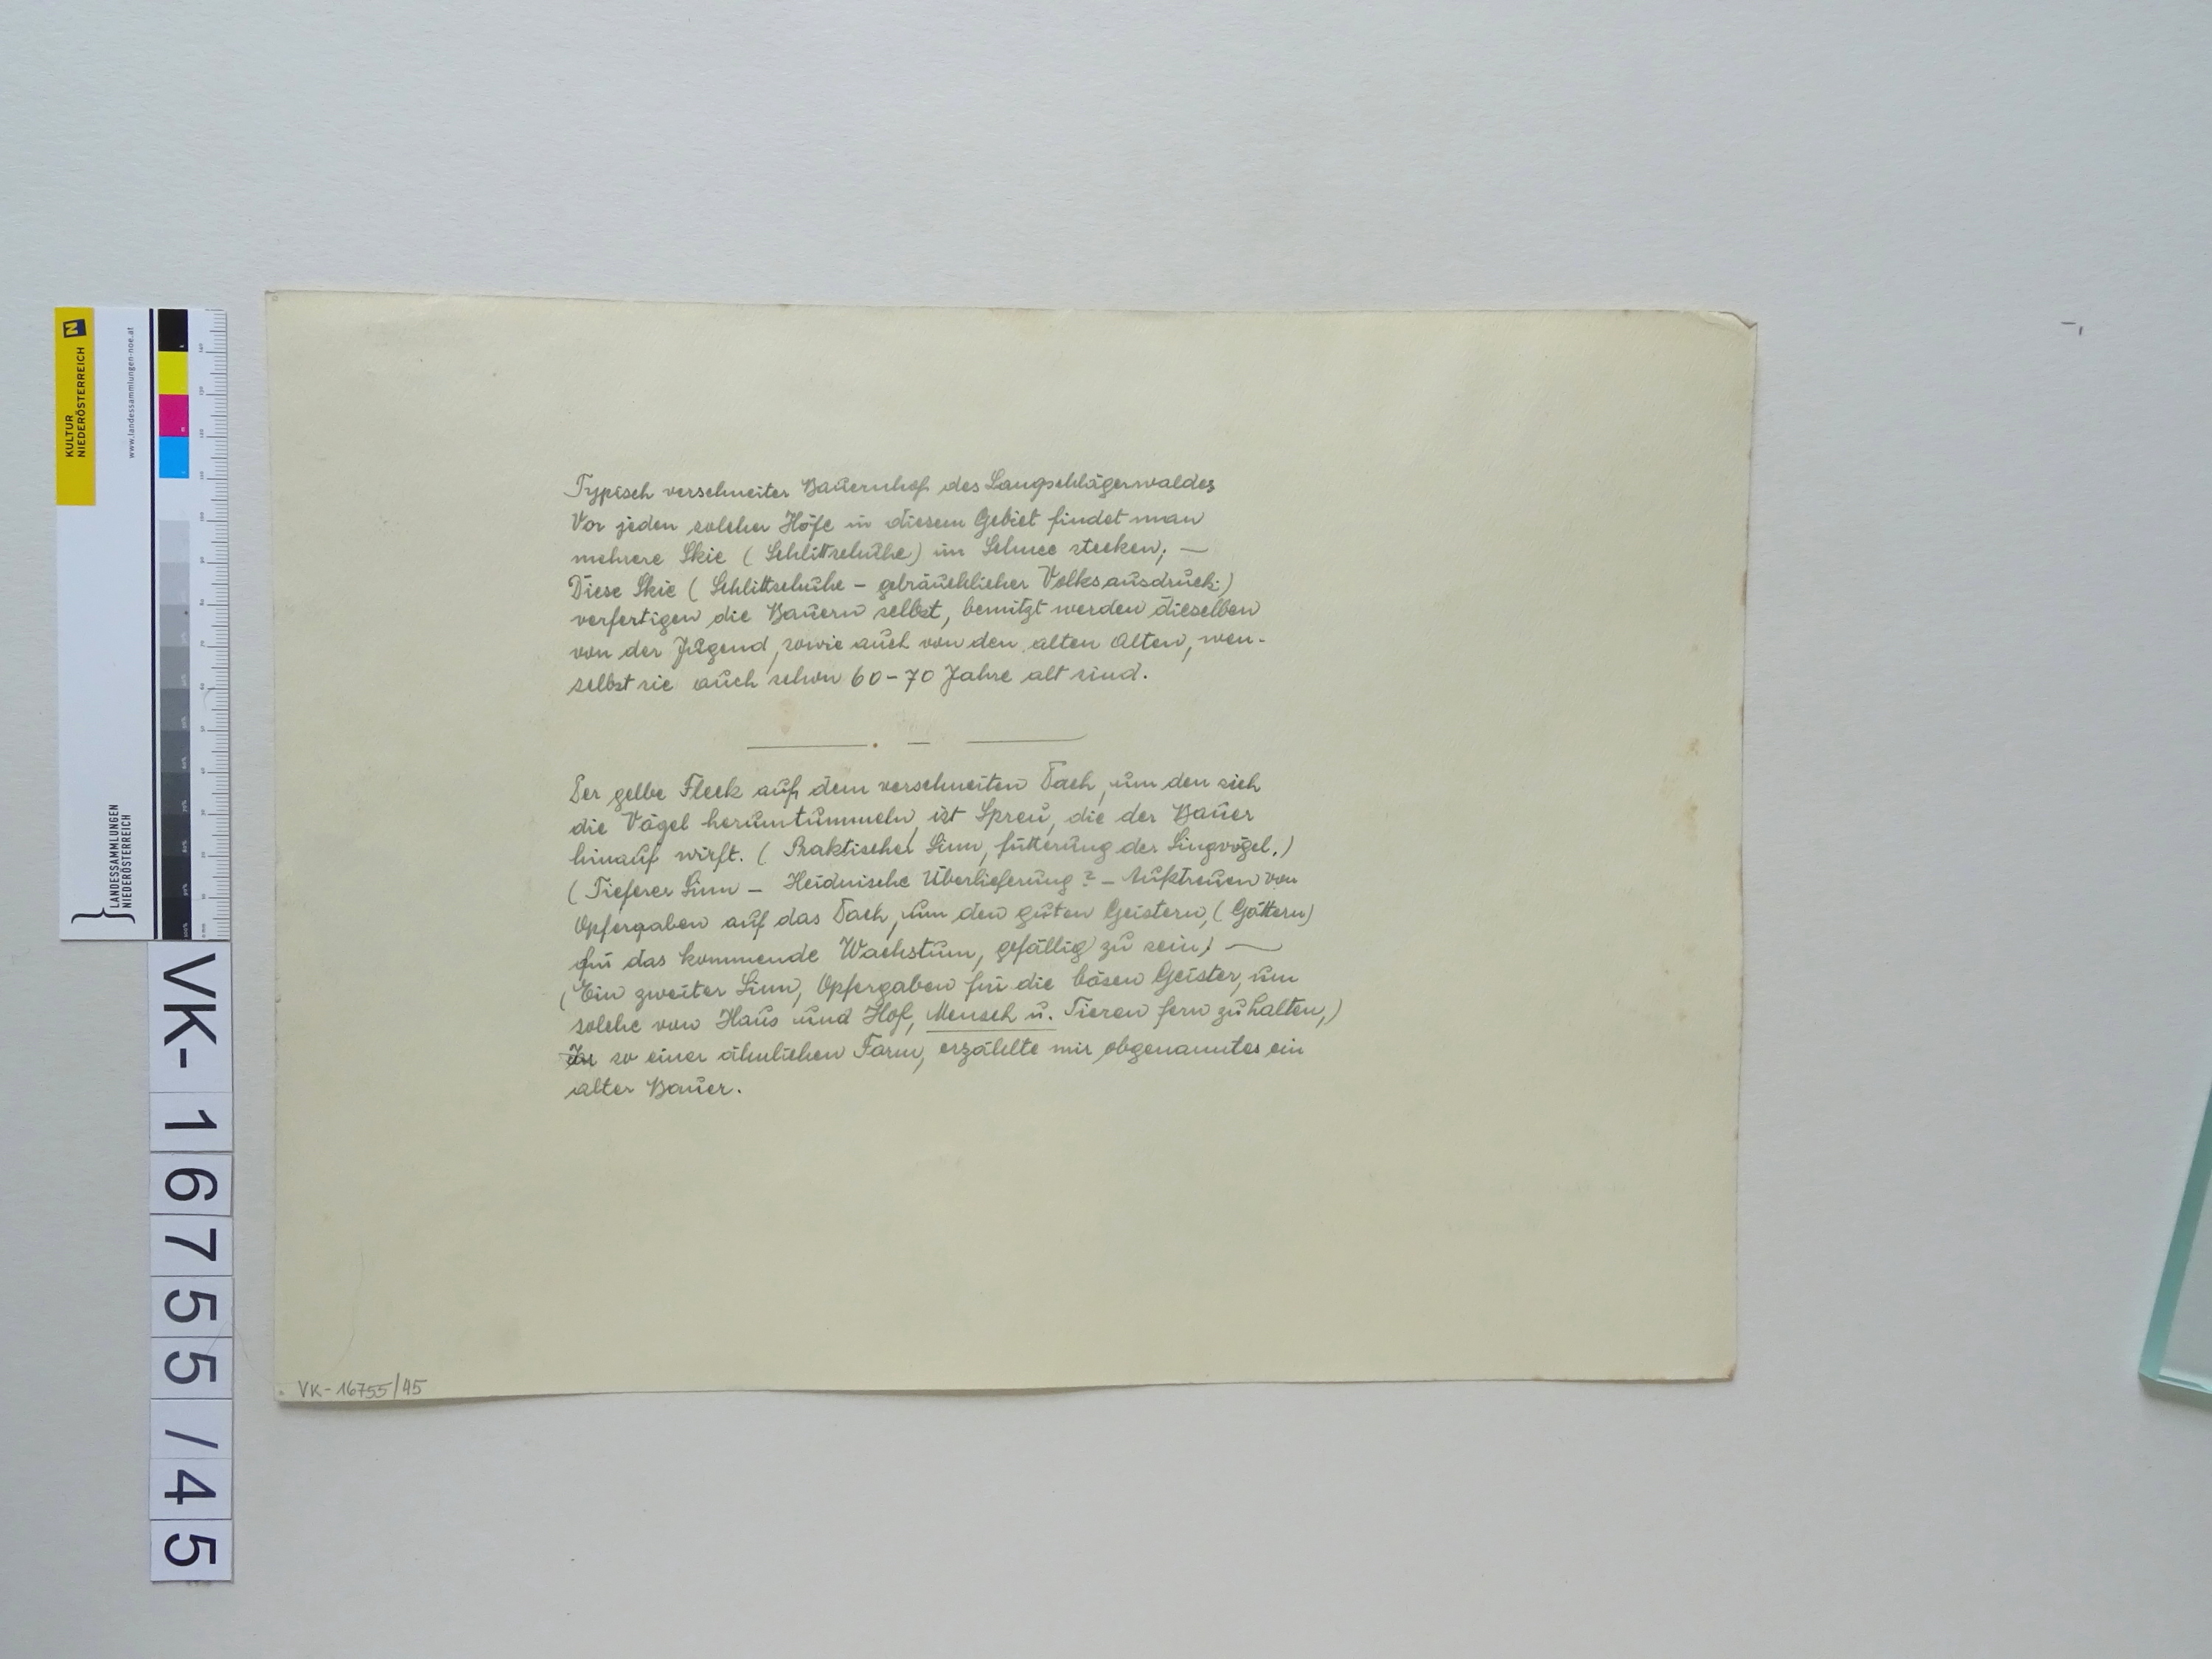 Typisch verschneiter Bauernhof des Langschlägerwaldes
Vor jeden solcher Höfe in diesem Gebiet findet man
mehrere Skie (Schlittschuhe) im Schnee stecken; —
Diese Skie (Schlittschuhe – gebräuchlicher Volksausdruck;)
verfertigen die Bauern selbst, benützt werden dieselben
von der Jugend, sowie auch von den alten Alten, wen-
selbst sie auch schon 60-70 Jahre alt sind.
Der gelbe Fleck auf dem verschneiten Dach, um den sich
die Vögel herumtummeln, ist Spreu, die der Bauer
hinauf wirft. (Praktischer Sinn, fütterung der Singvögel.)
(Tieferer Sinn – Heidnische Überlieferung? – Aufstreuen von
Opfergaben auf das Dach, um den guten Geistern, (Göttern)
für das kommende Wachstum, gefällig zu sein) —
(Ein zweiter Sinn, Opfergaben für die bösen Geister, um
solche von Haus und Hof, Mensch u. Tieren fern zu halten,)
In so einer ähnlichen Form, erzählte mir obgenanntes ein
alter Bauer.
VK-16755/45
KULTUR
NIEDERÖSTERREICH
N
www.landessammlungen-noe.at
LANDESSAMMLUNGEN
NIEDERÖSTERREICH
VK-16755/45